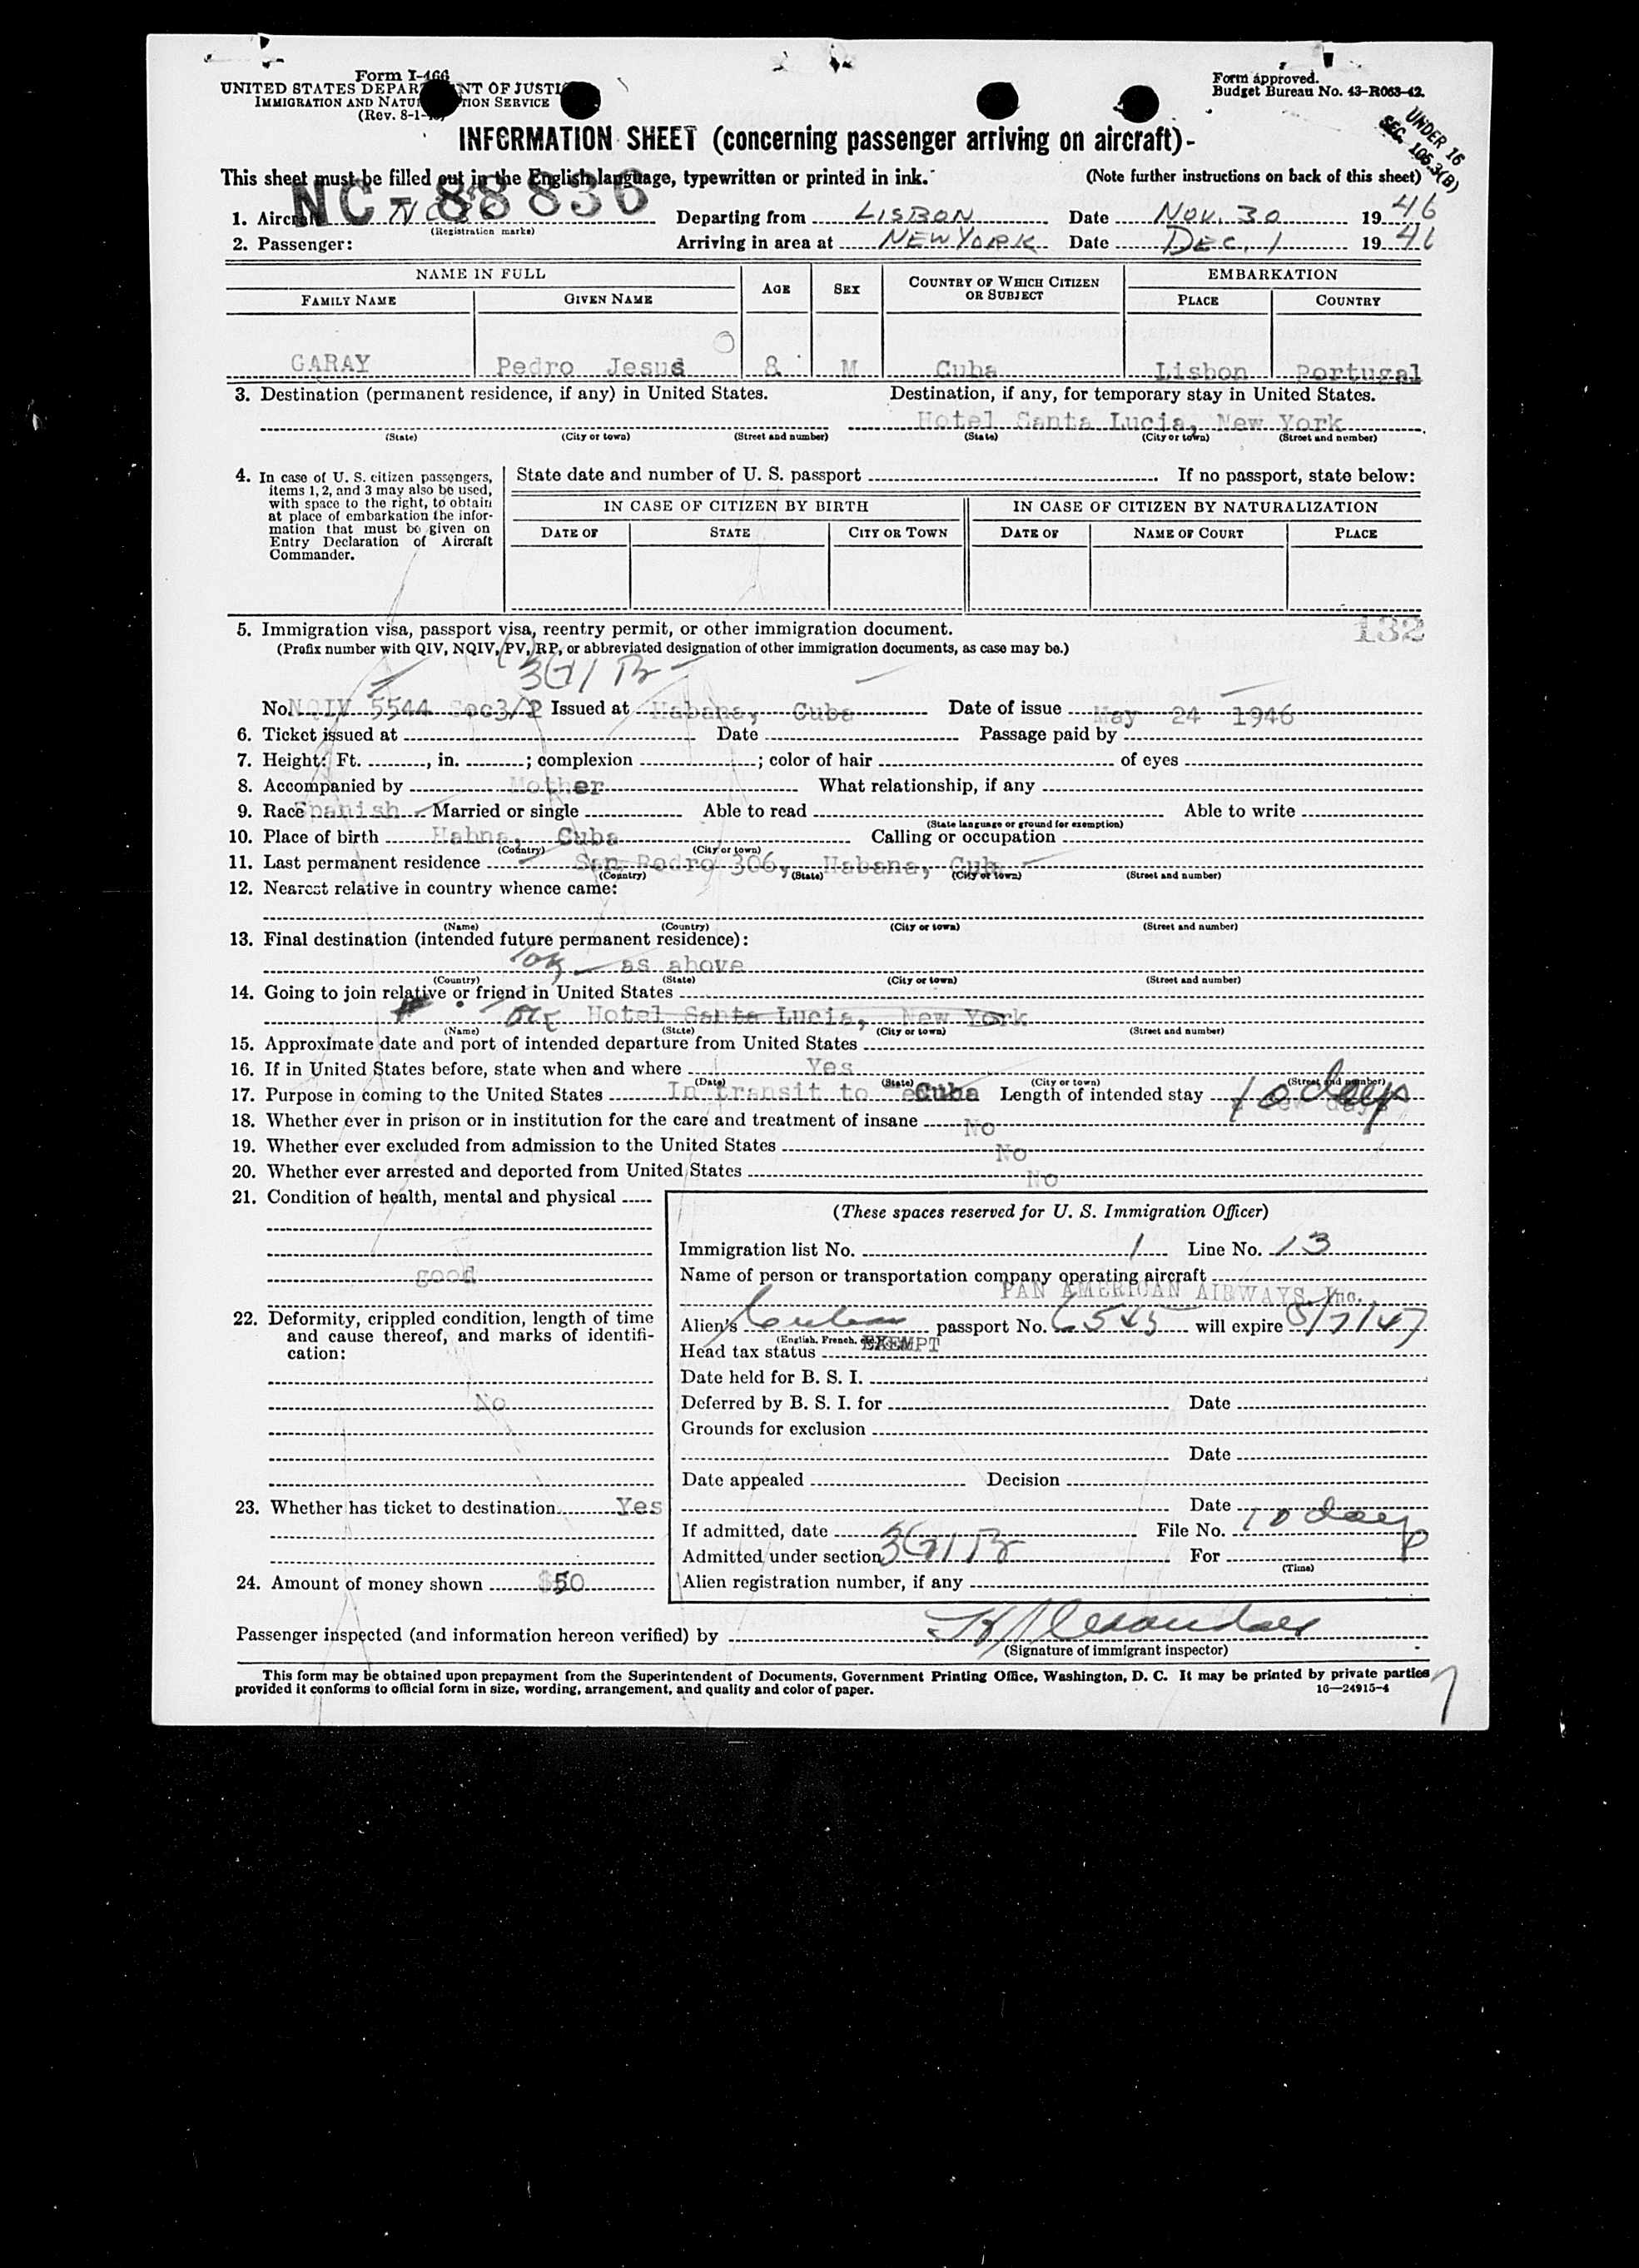 Form I-466
UNITED STATES DEPARTMENT OF JUSTICE
IMMIGRATION AND NATURALIZATION SERVICE
(Rev. 8-1-
Form approved.
Budget Bureau No. 43-R063-42.
UNDER 16
SEC. 105.3(B)
INFORMATION SHEET (concerning passenger arriving on aircraft)-
This sheet must be filled out in the English language, typewritten or printed in ink. (Note further instructions on back of this sheet)
NC-88836
1. Aircraft Departing from LISBON Date NOV. 30 1946
(Registration marks)
2. Passenger: Arriving in area at NEW YORK Date DEC. 1 1946
NAME IN FULL AGE SEX COUNTRY OF WHICH CITIZEN OR SUBJECT EMBARKATION
FAMILY NAME GIVEN NAME PLACE COUNTRY
GARAY Pedro Jesus 8 M Cuba Lisbon Portugal
3. Destination (permanent residence, if any) in United States. Destination, if any, for temporary stay in United States.
Hotel Santa Lucia, New York
(State) (City or town) (Street and number) (State) (City or town) (Street and number)
4. In case of U. S. citizen passengers, items 1, 2, and 3 may also be used, with space to the right, to obtain at place of embarkation the information that must be given on Entry Declaration of Aircraft Commander.
State date and number of U. S. passport If no passport, state below:
IN CASE OF CITIZEN BY BIRTH IN CASE OF CITIZEN BY NATURALIZATION
DATE OF STATE CITY OR TOWN DATE OF NAME OF COURT PLACE
132
5. Immigration visa, passport visa, reentry permit, or other immigration document.
(Prefix number with QIV, NQIV, PV, RP, or abbreviated designation of other immigration documents, as case may be.)
No. NQIV 5544 Sec3/2 Issued at Habana, Cuba Date of issue May 24 1946
6. Ticket issued at Date Passage paid by
7. Height: Ft. , in. ; complexion ; color of hair of eyes
8. Accompanied by Mother What relationship, if any
9. Race Spanish Married or single Able to read Able to write
(State language or ground for exemption)
10. Place of birth Habna, Cuba Calling or occupation
(Country) (City or town)
11. Last permanent residence San Pedro 306, Habana, Cub
(Country) (State) (City or town) (Street and number)
12. Nearest relative in country whence came:
(Name) (Country) (City or town) (Street and number)
13. Final destination (intended future permanent residence):
as above
(Country) (State) (City or town) (Street and number)
14. Going to join relative or friend in United States
Hotel Santa Lucia, New York
(Name) (State) (City or town) (Street and number)
15. Approximate date and port of intended departure from United States
16. If in United States before, state when and where Yes
(Date) (State) (City or town) (Street and number)
17. Purpose in coming to the United States In transit to Cuba Length of intended stay 10 days
18. Whether ever in prison or in institution for the care and treatment of insane No
19. Whether ever excluded from admission to the United States No
20. Whether ever arrested and deported from United States No
21. Condition of health, mental and physical
good
22. Deformity, crippled condition, length of time and cause thereof, and marks of identification:
No
23. Whether has ticket to destination Yes
24. Amount of money shown $50
(These spaces reserved for U. S. Immigration Officer)
Immigration list No. 1 Line No. 13
Name of person or transportation company operating aircraft
PAN AMERICAN AIRWAYS, Inc.
Alien's Cuban passport No. 6545 will expire 5/7/47
(English, French, etc.)
Head tax status EXEMPT
Date held for B. S. I.
Deferred by B. S. I. for Date
Grounds for exclusion
Date
Date appealed Decision
Date
If admitted, date File No. 10 days
Admitted under section 3(1) For
(Time)
Alien registration number, if any
Passenger inspected (and information hereon verified) by
(Signature of immigrant inspector)
This form may be obtained upon prepayment from the Superintendent of Documents, Government Printing Office, Washington, D. C. It may be printed by private parties
provided it conforms to official form in size, wording, arrangement, and quality and color of paper. 16—24915-4